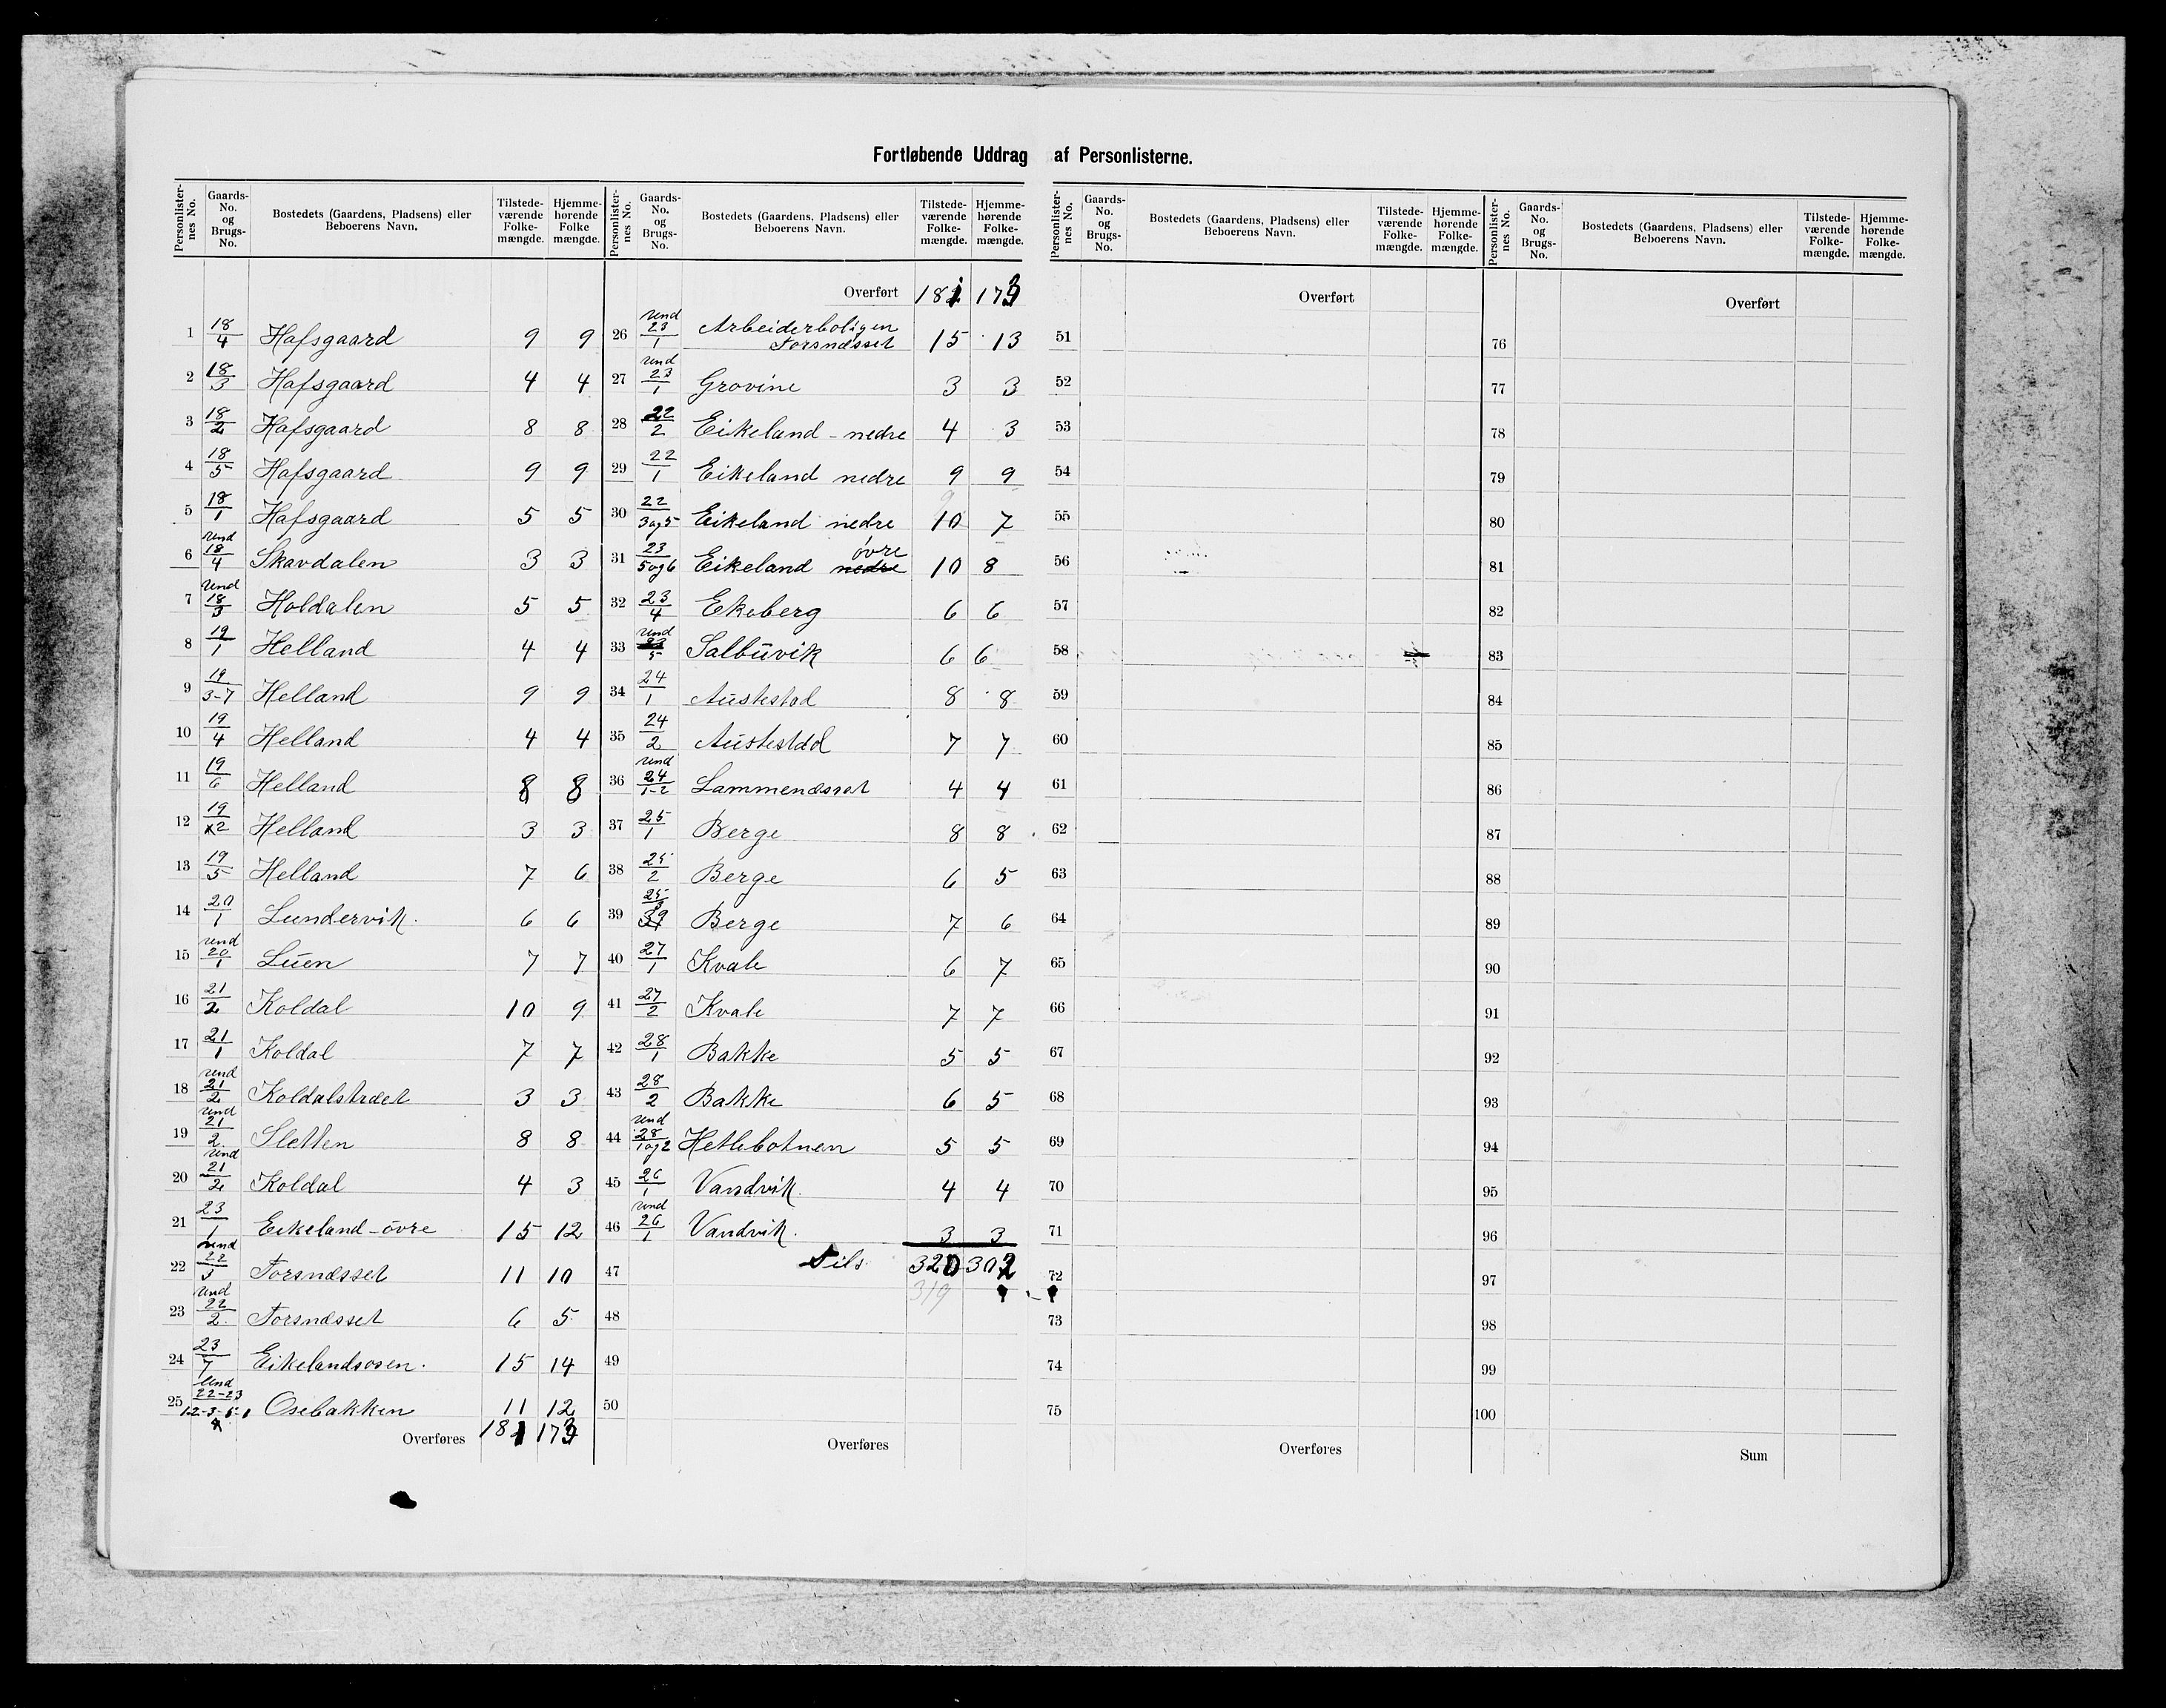 Fortløbende Uddrag af Personlisterne.
Personlister-nes No. Gaards-No. og Brugs-No. Bostedets (Gaardens, Pladsens) eller Beboerens Navn. Tilstede-værende Folke-mængde. Hjemme-hørende Folke mængde.
1 18/4 Hafsgaard 9 9
2 18/3 Hafsgaard 4 4
3 18/2 Hafsgaard 8 8
4 18/5 Hafsgaard 9 9
5 18/1 Hafsgaard 5 5
6 und 18/4 Skavdalen 3 3
7 und 18/3 Holdalen 5 5
8 19/1 Helland 4 4
9 19/3-7 Helland 9 9
10 19/4 Helland 4 4
11 19/6 Helland 8 8
12 19/2 Helland 3 3
13 19/5 Helland 7 6
14 20/1 Lundervik. 6 6
15 und 20/1 Luen 7 7
16 21/2 Koldal 10 9
17 21/1 Koldal 7 7
18 und 21/2 Koldalstræet 3 3
19 und 21/2. Sletten 8 8
20 und 21/2 Koldal 4 3
21 23/1 Eikeland-övre 15 12
22 und 22/3 Forsnæsset 11 10
23 und 22/2. Forsnæsset 6 5
24 23/7 Eikelandsosen. 15 14
25 Und 22-23 Osebakken 11 12
Overføres 181 173
Personlister-nes No. Gaards-No. og Brugs-No. Bostedets (Gaardens, Pladsens) eller Beboerens Navn. Tilstede-værende Folke-mængde. Hjemme-hørende Folke-mængde.
Overført 181 173
26 und 23/1 Arbeiderboligen Forsnæsset 15 13
27 und 23/1 Grovine 3 3
28 22/2 Eikeland-nedre 4 3
29 22/1 Eikeland nedre 9 9
30 22/3 og 5 Eikeland nedre 10 7
31 23/5 og 6 Eikeland nedre övre 10 8
32 23/4 Ekeberg 6 6
33 und 23/5 Salbuvik 6 6
34 24/1 Austestad 8 8
35 24/2 Austestad 7 7
36 und 24/1-2 Lammenæsset 4 4
37 25/1 Berge 8 8
38 25/2 Berge 6 5
39 25/3 Berge 7 6
40 27/1 Kvale 6 7
41 27/2 Kvale 7 7
42 28/1 Bakke 5 5
43 28/2 Bakke 6 5
44 und 28/1 og 2 Hetlebotnen 5 5
45 26/1 Vandvik. 4 4
46 und 26/1 Vandvik. 3 3
47 Tils. 320 302
319
48
49
50
Overføres
Personlister-nes No. Gaards-No. og Brugs-No. Bostedets (Gaardens, Pladsens) eller Beboerens Navn. Tilstede-værende Folke-mængde. Hjemme-hørende Folke-mængde.
Overført
51
52
53
54
55
56
57
58
59
60
61
62
63
64
65
66
67
68
69
70
71
72
73
74
75
Overføres
Personlister-nes No. Gaards-No. og Brugs-No. Bostedets (Gaardens, Pladsens) eller Beboerens Navn. Tilstede-værende Folke-mængde. Hjemme-hørende Folke-mængde.
Overført
76
77
78
79
80
81
82
83
84
85
86
87
88
89
90
91
92
93
94
95
96
97
98
99
100
Sum